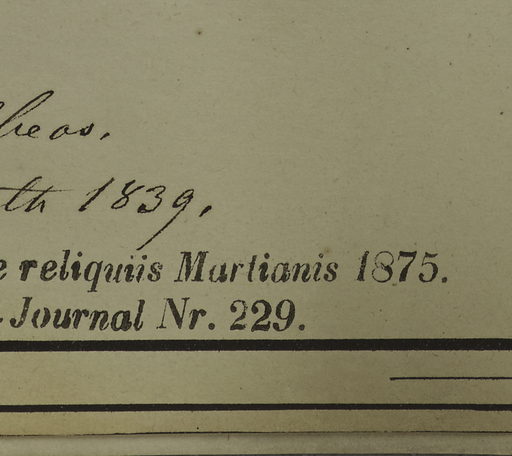 th 1839.
e reliquiis Martianis 1875.
-Journal Nr. 229.